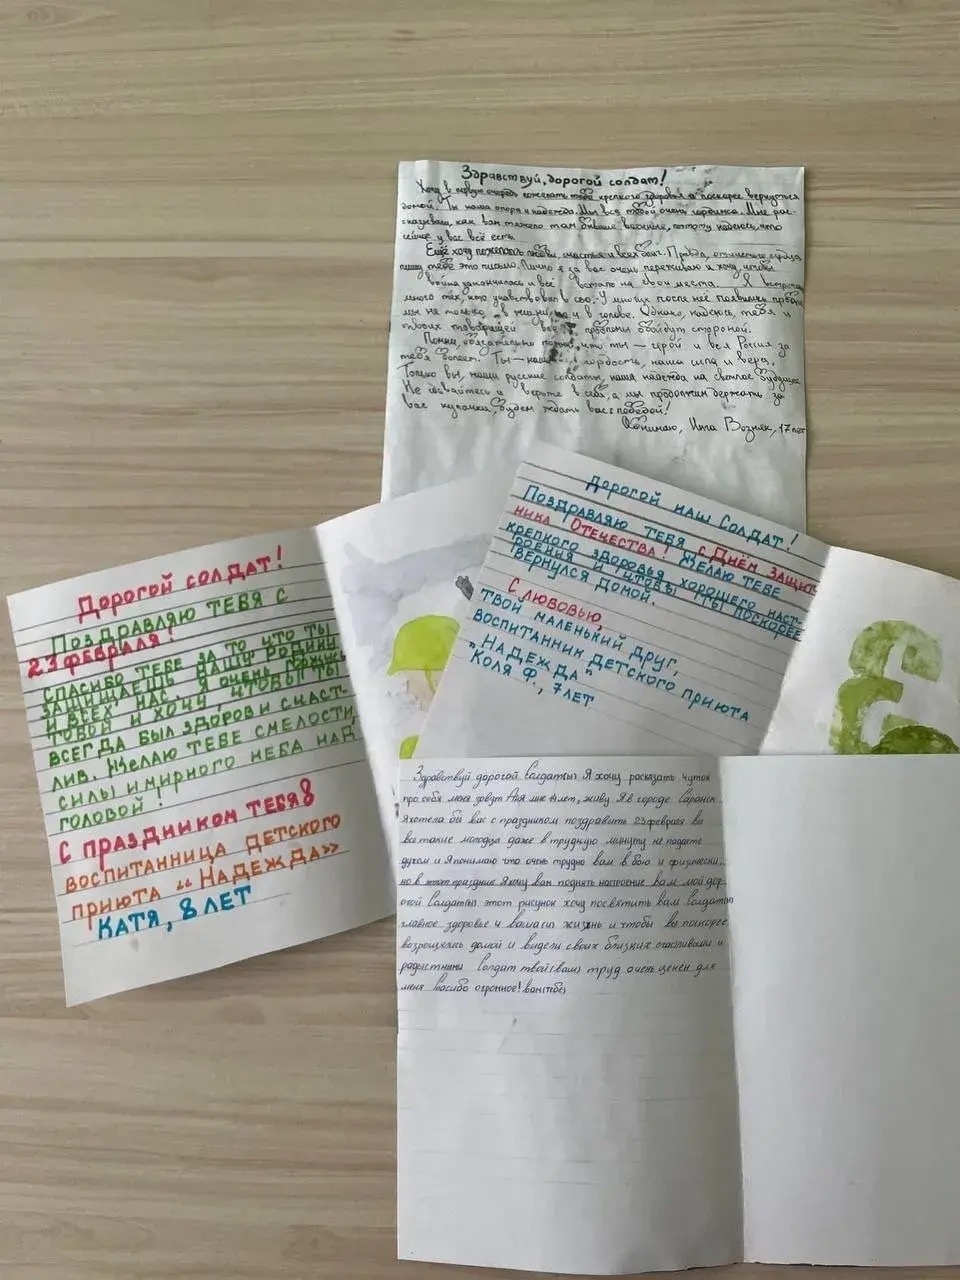 Здравствуй, дорогой солдат!
Хочу в первую очередь пожелать тебе крепкого здоровья и поскорее вернуться
домой. Ты наша опора и надежда. Мы все тобой очень гордимся. Мне рас-
сказывали, как вам тяжело там бывает, поэтому надеюсь, что
сейчас у вас всё есть.
Ещё хочу пожелать любви, счастья и всех благ. Правда, от чистого сердца
пишу тебе это письмо. Лично я за вас очень переживаю и хочу, чтобы
война закончилась и всё встало на свои места. Я встречала
много тех, кто участвовал в сво. У многих после неё появились пробле-
мы не только в жизни, но и в голове. Однако, надеюсь, тебя и
твоих товарищей все проблемы обойдут стороной.
Помни, обязательно помни, что ты — герой и вся Россия за
тебя болеет. Ты — наша гордость, наша сила и вера.
Только вы, наши русские солдаты, наша надежда на светлое будущее
Не сдавайтесь и верьте в себя, а мы продолжим держать за
вас кулачки, будем ждать вас с победой!
Обнимаю, Возняк, 17 лет
Дорогой наш солдат!
Поздравляю тебя с Днём защит-
ника Отечества! Желаю тебе
крепкого здоровья, хорошего наст-
роения и чтобы ты поскорее
вернулся домой.
С любовью,
твой маленький друг,
воспитанник детского приюта
"Надежда"
Коля Ф., 7 лет
Дорогой солдат!
Поздравляю тебя с
23 февраля!
Спасибо тебе за то что ты
защищаешь нашу Родину
и всех нас. Я очень горжусь
тобой и хочу, чтобы ты
всегда был здоров и счаст-
лив. Желаю тебе смелости,
силы и мирного неба над
головой!
С праздником тебя
воспитанница детского
приюта «Надежда»
Катя, 8 лет
Здравствуй дорогой Солдат(ы) Я хочу расказать чуток
про себя меня зовут Аня мне лет, живу Я в городе Саранск
Я хотела бы вас с праздником поздравить 23 февраля вы
все такие молодцы даже в трудную минуту не падаете
духом и Я понимаю что очень трудно вам в бою и физически,
но в этот праздник Я хочу вам поднять настроение вам мой дор-
огой Солдат(ы) этот рисунок хочу посвятить вам Солдаты
главное здоровье и жизнь и чтобы вы поскорее
возрощялись домой и видели своих близких счастливыми и
радыстными Солдат твой(ваш) труд очень ценен для
меня Спасибо огромное! вам(тебе)